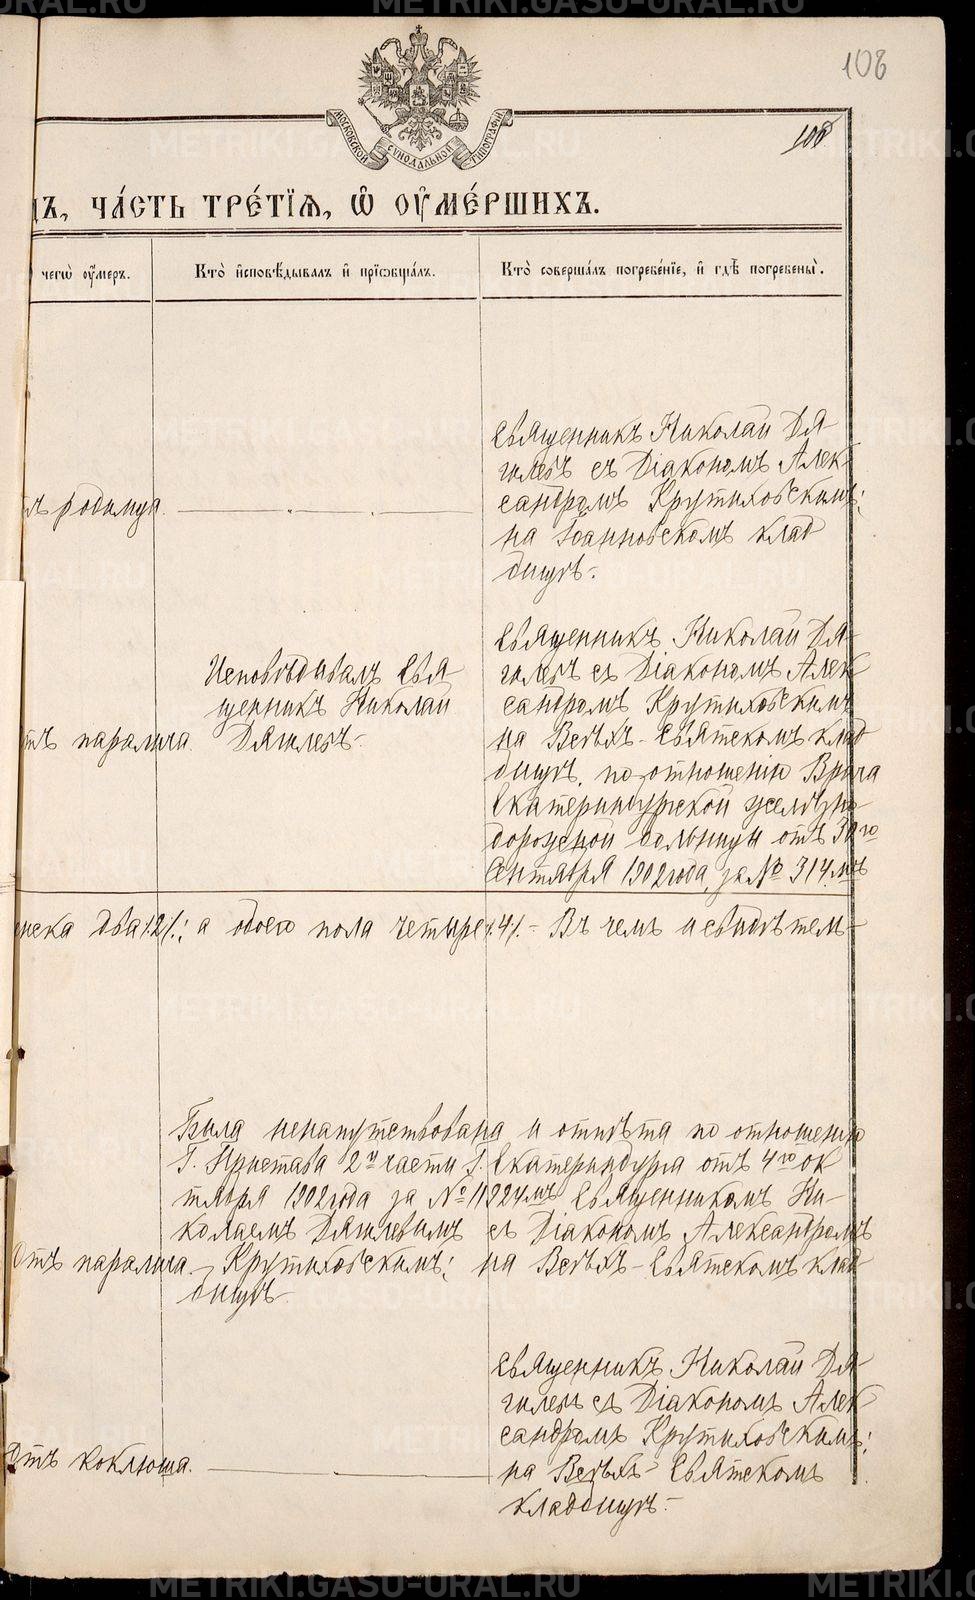 108
МОСКОВСКОЙ СѴНОДАЛЬНОЙ ТИПОГРАФІИ
ЧА́СТЬ ТРЕ́ТІѦ, Ѽ ОУ҆МЕ́РШИХЪ.
чегѡ̀ оу҆́меръ.
Кто̀ и҆сповѣ́дывалъ и҆ прїѡбща́лъ.
Кто̀ соверша́лъ погребе́нїе, и҆ гдѣ̀ погребены̀.
родимца.
Священникъ Николай Дя-
гилевъ съ Діакономъ Алек-
сандромъ Крутиховскимъ;
на Іоанновскомъ клад
бищѣ.-
отъ паралича.
Исповѣдывалъ Свя-
щенникъ Николай
Дягилевъ.-
Священникъ Николай Дя-
гилевъ съ Діакономъ Алек
сандромъ Крутиховскимъ
на Всѣхъ-Святскомъ клад
бищѣ, по отношенію Врача
Екатеринбургской желѣзно
дорожной больницы отъ 30го
Сентября 1902 года, за № 314.мъ
женска два /2/.; а обоего пола четыре /4/.- Въ чемъ и свидѣтель-
Была ненапутствована и отпѣта по отношенію
Г. Пристава 2й части Г. Екатеринбурга отъ 4го ок
тября 1902 года за № 11224мъ Священникомъ Ни-
колаемъ Дягилевымъ съ Діакономъ Александромъ
Отъ паралича. Крутиховскимъ; на Всѣхъ-Святскомъ клад
бищѣ.
Отъ коклюша.
Священникъ Николай Дя-
гилевъ съ Діакономъ Алек
сандромъ Крутиховскимъ;
на Всѣхъ-Святскомъ
кладбищѣ.-
METRIKI.GASO-URAL.RU